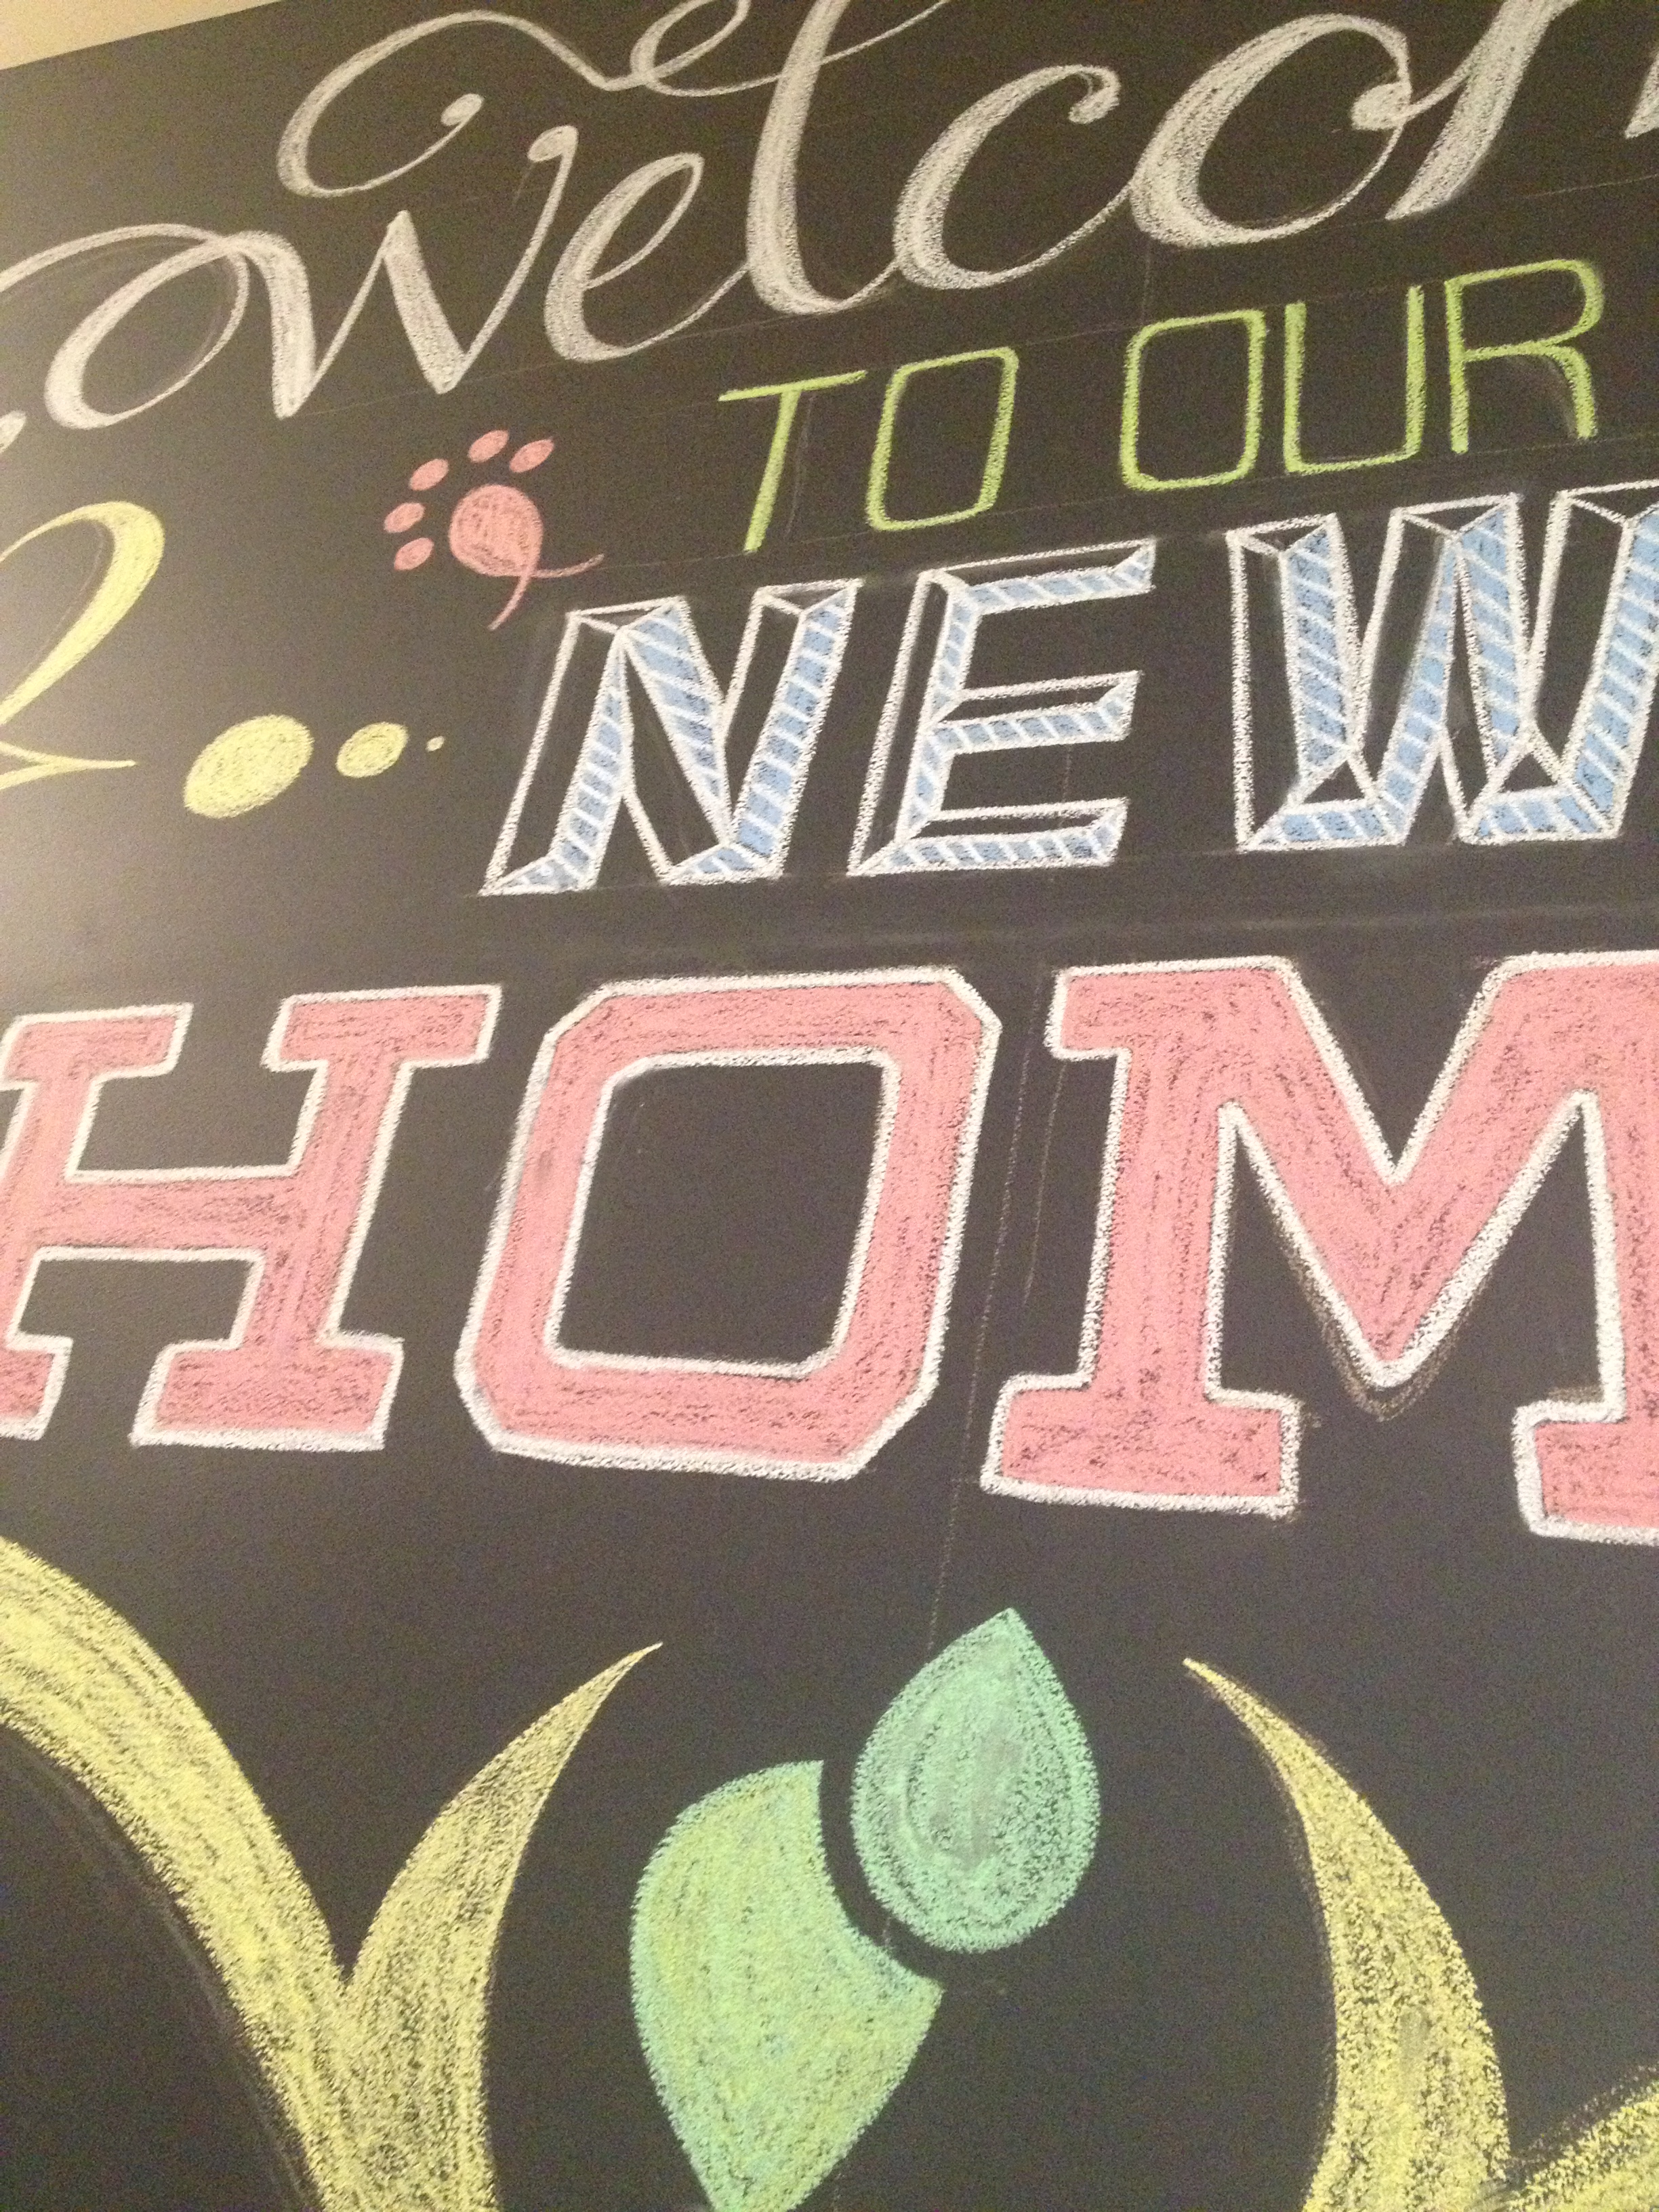 Welcom
TO OUR
NEW
HOM